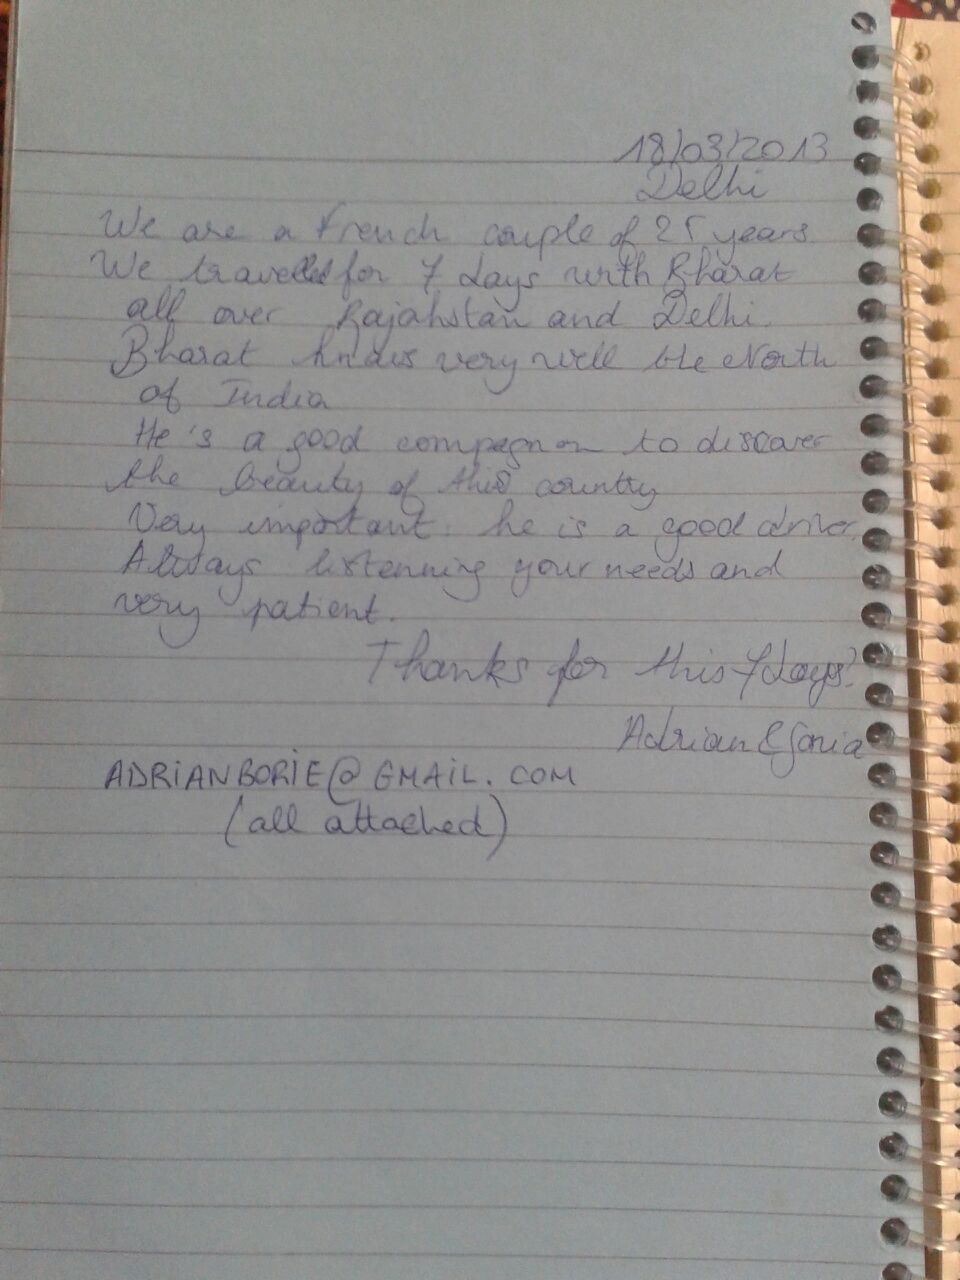 18/03/2013
Delhi
We are a french couple of 25 years.
We travelled for 7 days with Bharat
all over Rajahstan and Delhi.
Bharat knows very well the North
of India
He's a good compagnon to discover
the beauty of this country
Very important: he is a good driver.
Always listenning your needs and
very patient.
Thanks for this 7 days!
Adrian & Sonia
ADRIANBORIE@GMAIL.COM
(all attached)